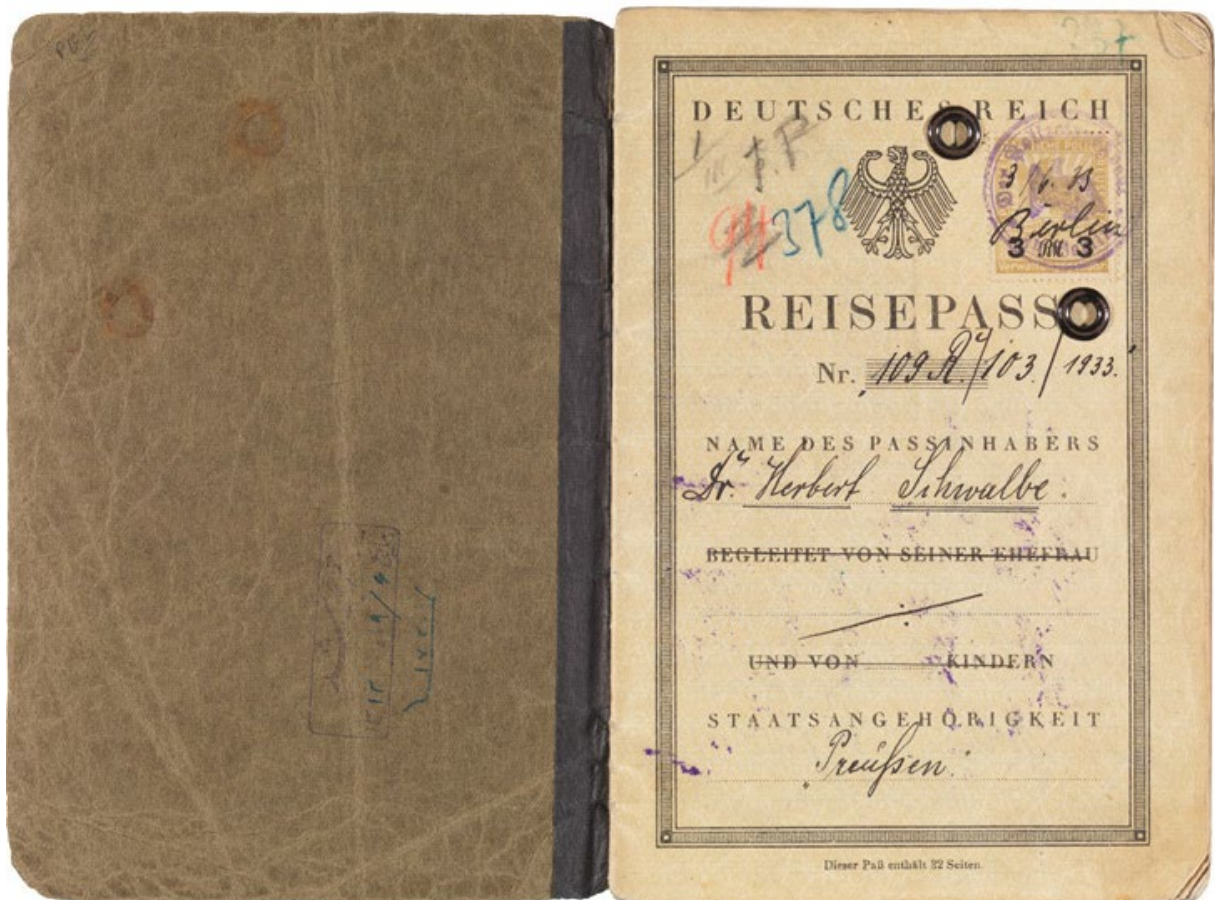 DEUTSCHES REICH
378
3/6. 33
Berlin
3 RM 3
REISEPASS
Nr. 109 R./103/1933.
NAME DES PASSINHABERS
Dr. Herbert Schwalbe.
BEGLEITET VON SEINER EHEFRAU
UND VON KINDERN
STAATSANGEHÖRIGKEIT
Preußen.
Dieser Paß enthält 32 Seiten.